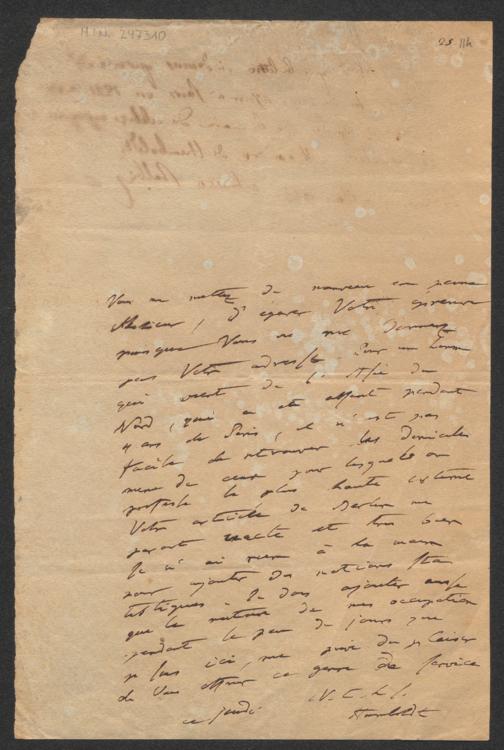 H.I.N. 247310
25 114
Vous me mettez de nouveau en peine
Monsieur, d'égarer Votre épreuve
puisque Vous ne me donnez
pas Votre adresse. Pour un homme
qui vient de l'Asie du
Nord, qui a été absent pendant
4 ans de Paris, il n'est pas
facile de retrouver les domiciles
meme de ceux pour lesquels on
professe la plus haute estime
Votre article de Berlin me
parait exacte et tres bien
Je n'ai rien à la main
pour ajouter des notions sta
tistiques. Je dois ajouter aussi
que la nature de mes occupations
pendant le peu de jours que
je suis ici, me prive du plaisir
de Vous offrir ce genre de service
ce jeudi
Humboldt